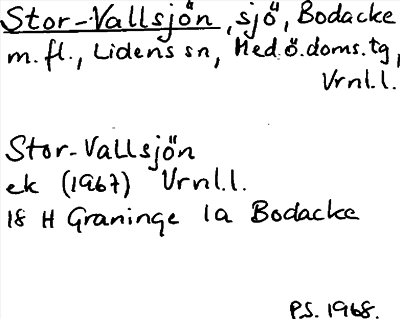 Stor-Vallsjön, sjö, Bodacke
m.fl., Lidens sn, Med.ö.doms.tg,
Vrnl.l.
Stor-Vallsjön
ek (1967) Vrnl.l.
18 H Graninge 1a Bodacke
P.S. 1968.